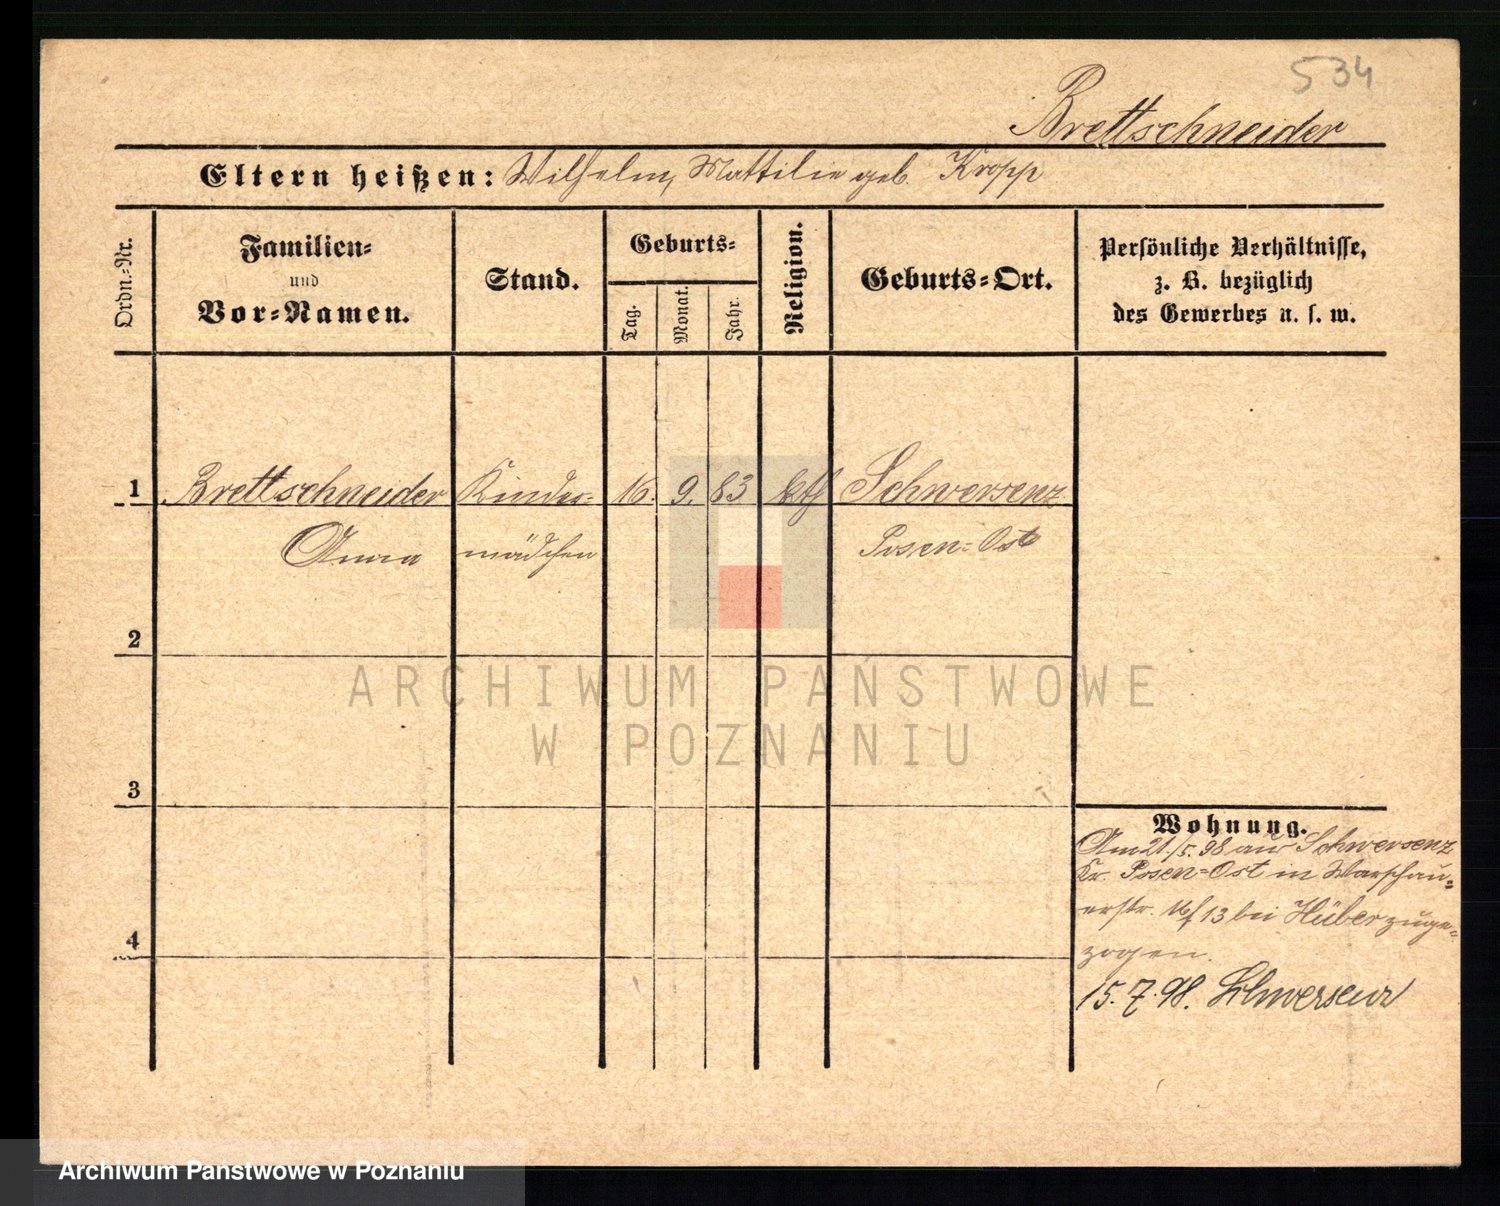 534
Brettschneider
Eltern heißen: Wilhelm, Mattilie geb. Kropp
Ordn.=Nr.
Familien=
und
Vor=Namen.
Stand.
Geburts=
Tag.
Monat.
Jahr.
Religion.
Geburts=Ort.
Persönliche Verhältnisse,
z. B. bezüglich
des Gewerbes u. s. w.
1 Brettschneider Kinder= 16. 9. 83 Schwersenz
Anna mädchen Posen=Ost
2
3
4
Wohnung.
Am 21./5. 98 aus Schwersenz
Kr. Posen=Ost in Warschau=
erstr. 13 bei Hüber zuge=
zogen.
15.7.98. Schwersenz
ARCHIWUM PAŃSTWOWE
W POZNANIU
Archiwum Państwowe w Poznaniu